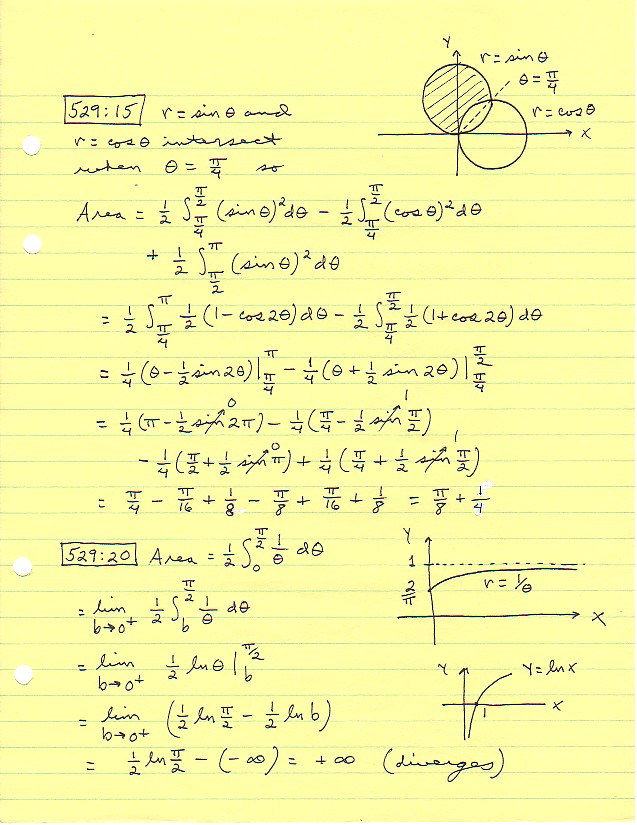 529:15 r = sin θ and
r = cos θ intersect
when θ = π/4 so
Y
r = sin θ
θ = π/4
r = cos θ
X
Area = 1/2 ∫_{π/4}^{π/2} (sin θ)² dθ − 1/2 ∫_{π/4}^{π/2} (cos θ)² dθ
+ 1/2 ∫_{π/2}^{π} (sin θ)² dθ
= 1/2 ∫_{π/4}^{π} 1/2 (1 − cos 2θ) dθ − 1/2 ∫_{π/4}^{π/2} 1/2 (1 + cos 2θ) dθ
= 1/4 (θ − 1/2 sin 2θ) |_{π/4}^{π} − 1/4 (θ + 1/2 sin 2θ) |_{π/4}^{π/2}
= 1/4 (π − 1/2 sin 2π)⁰ − 1/4 (π/4 − 1/2 sin π/2)¹
− 1/4 (π/2 + 1/2 sin π)⁰ + 1/4 (π/4 + 1/2 sin π/2)¹
= π/4 − π/16 + 1/8 − π/8 + π/16 + 1/8 = π/8 + 1/4
529:20 Area = 1/2 ∫_{0}^{π/2} 1/θ dθ
Y
1
2/π
r = 1/θ
X
= lim_{b→0⁺} 1/2 ∫_{b}^{π/2} 1/θ dθ
= lim_{b→0⁺} 1/2 ln θ |_{b}^{π/2}
Y
Y = ln X
X
1
= lim_{b→0⁺} (1/2 ln π/2 − 1/2 ln b)
= 1/2 ln π/2 − (−∞) = +∞ (diverges)